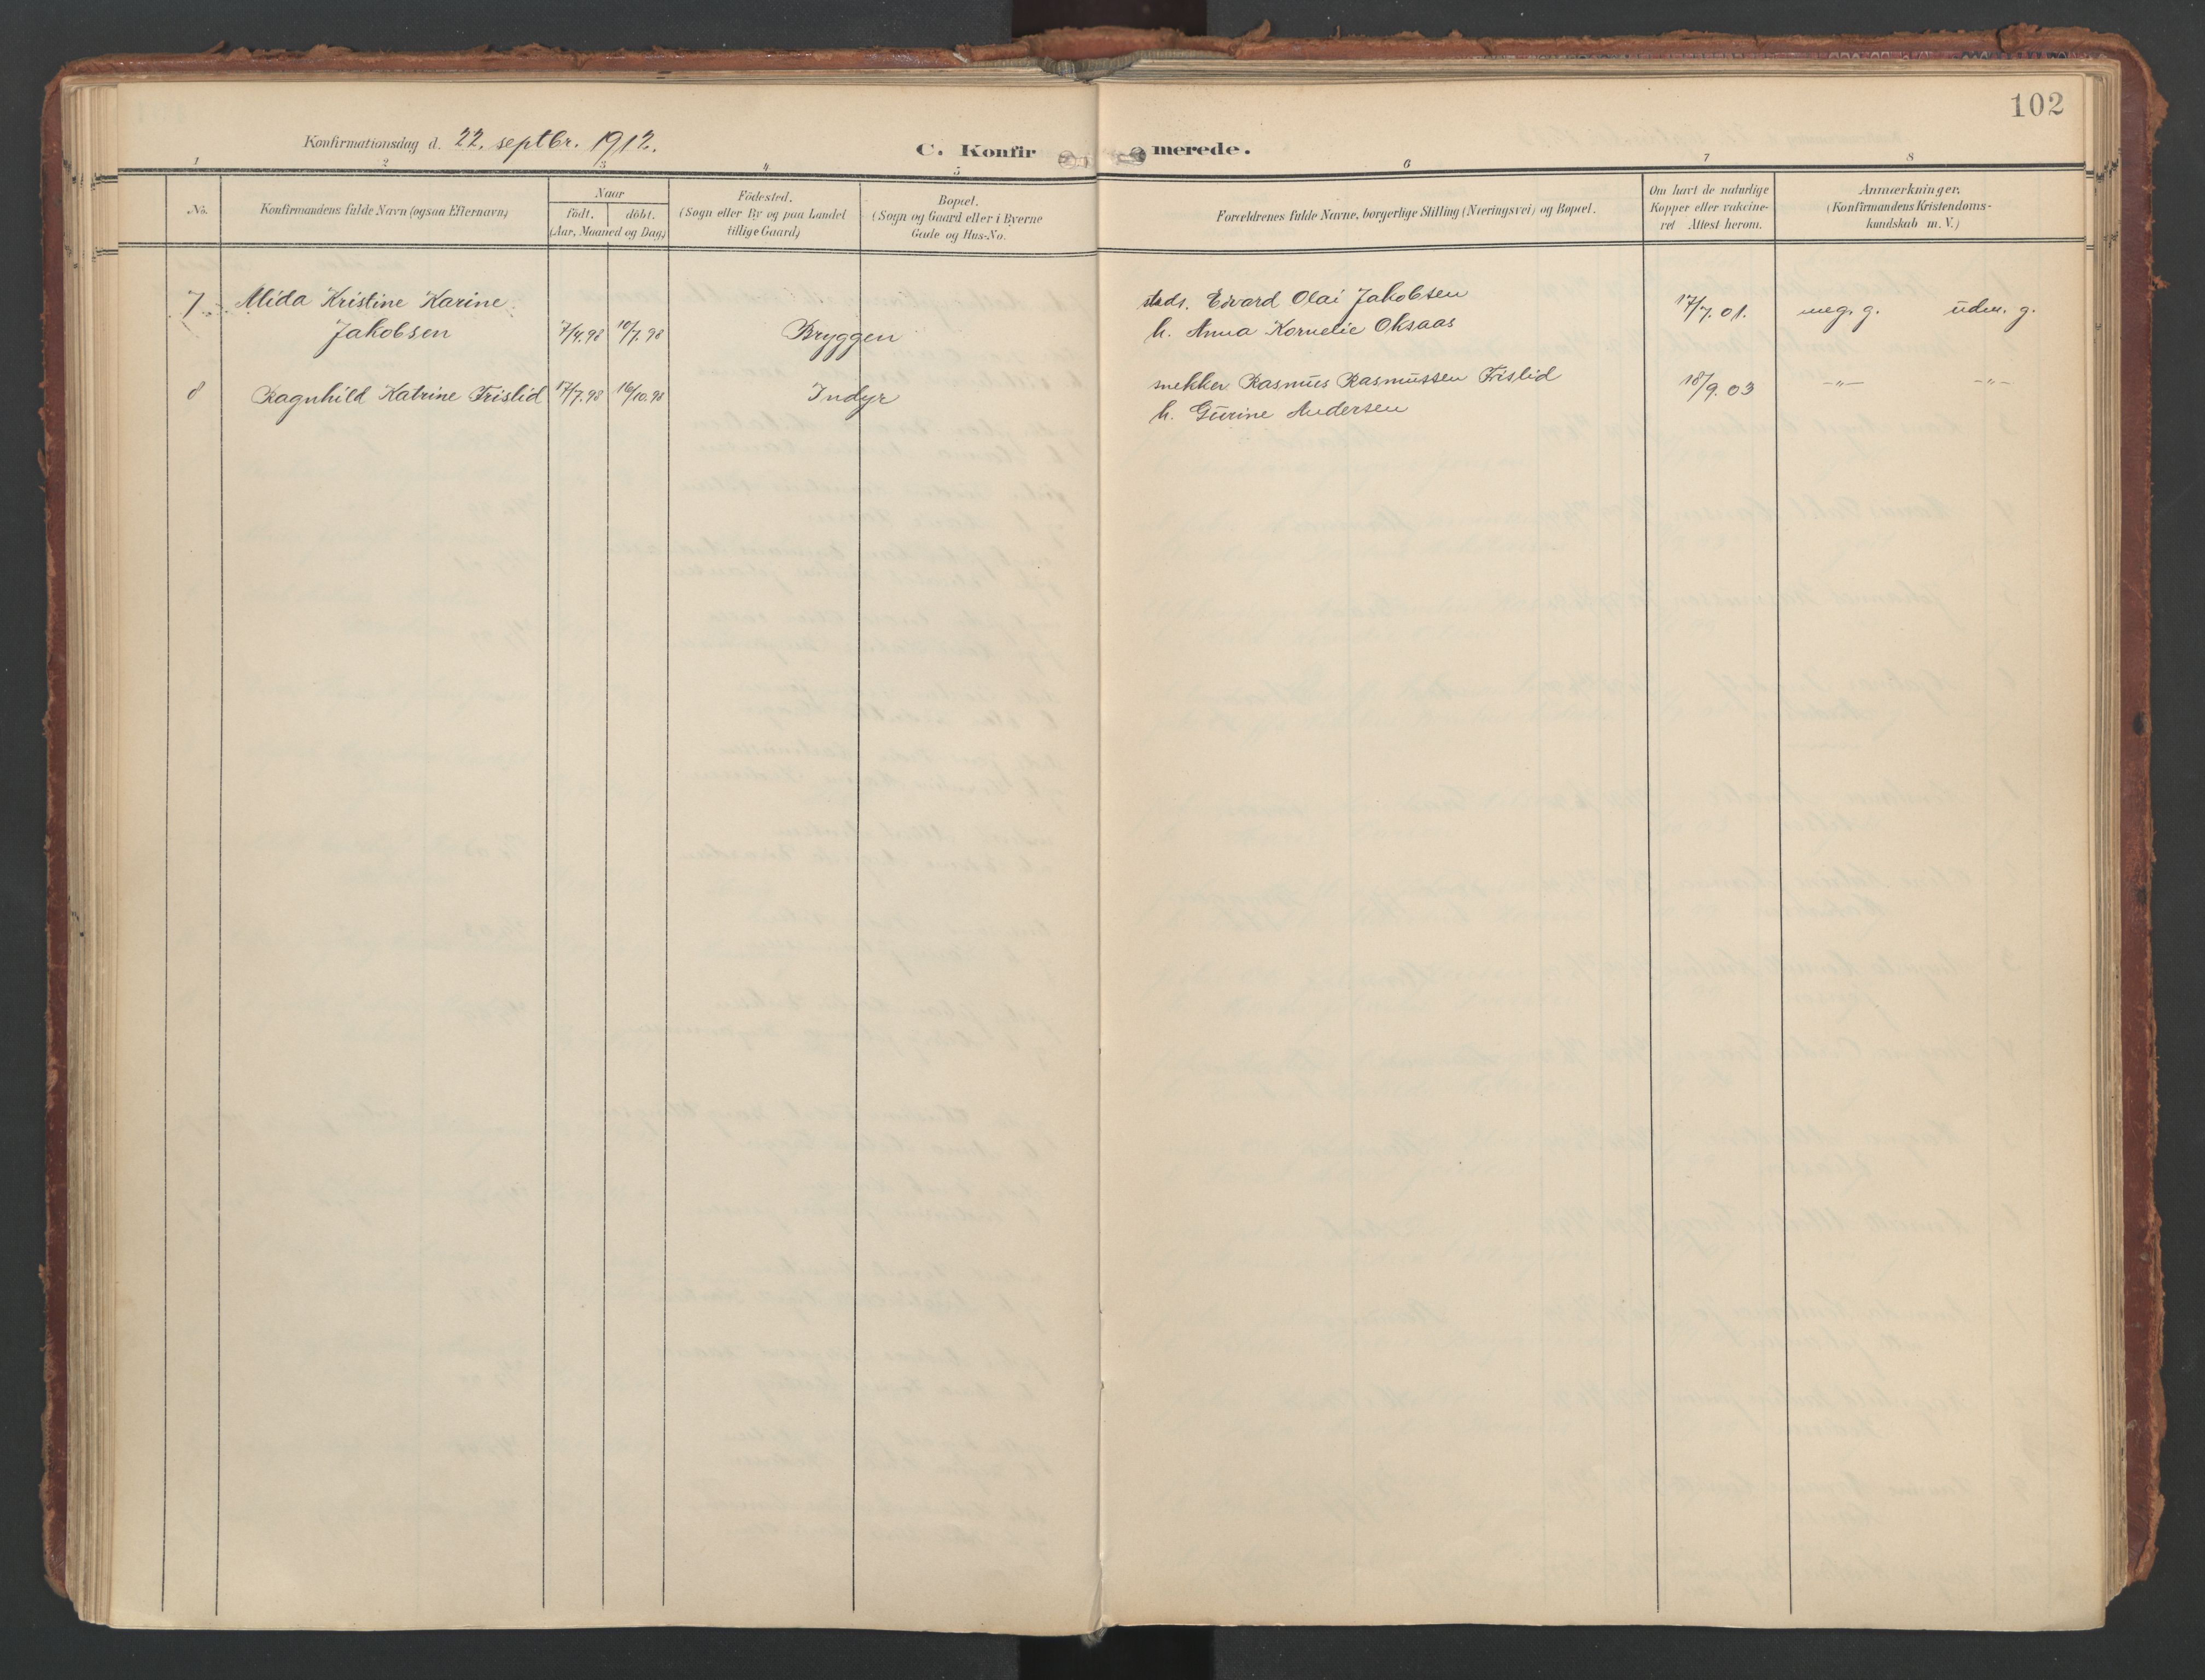 102
Konfirmationsdag d. 22. septbr. 1912.
C. Konfirmerede.
1 2 3 4 5 6 7 8
No.
Konfirmandens fulde Navn (ogsaa Efternavn)
Naar
födt.
döbt.
(Aar, Maaned og Dag)
Födested.
(Sogn eller By og paa Landet
tillige Gaard)
Bopæl.
(Sogn og Gaard eller i Byerne
Gade og Hus-No.
Forældrenes fulde Navne, borgerlige Stilling (Næringsvei) og Bopæl.
Om havt de naturlige
Kopper eller vakcine-
ret Attest herom.
Anmærkninger.
(Konfirmandens Kristendoms-
kundskab m. V.)
7 Alida Kristine Karine
Jakobsen 7/4.98 10/7.98 Bryggen
stads. Edvard Olai Jakobsen
h. Anna Kornelie Oksaas
17/7.01. meg. g. udm. g.
8 Ragnhild Katrine Frislid 17/7.98 16/10.98 Indyr
snekker Rasmus Rasmussen Frislid
h. Gurine Andersen
18/9.03 -"- -"-